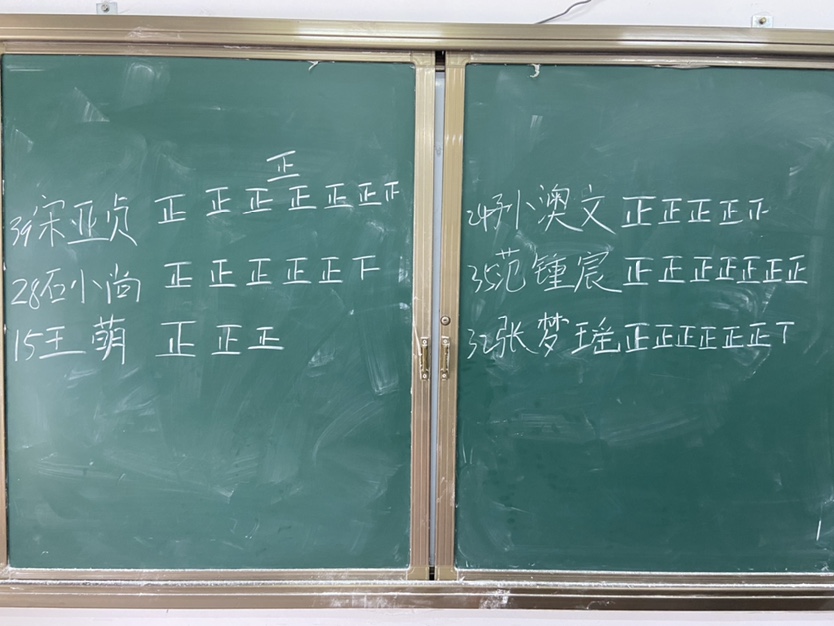 正
39宋亚贞 正 正 正 正 正 正 正
28石小尚 正 正 正 正 正 下
15王萌 正 正 正
24孙小澳文 正 正 正 正 正
35范锺宸 正 正 正 正 正 正 正
32张梦瑶 正 正 正 正 正 正 丅